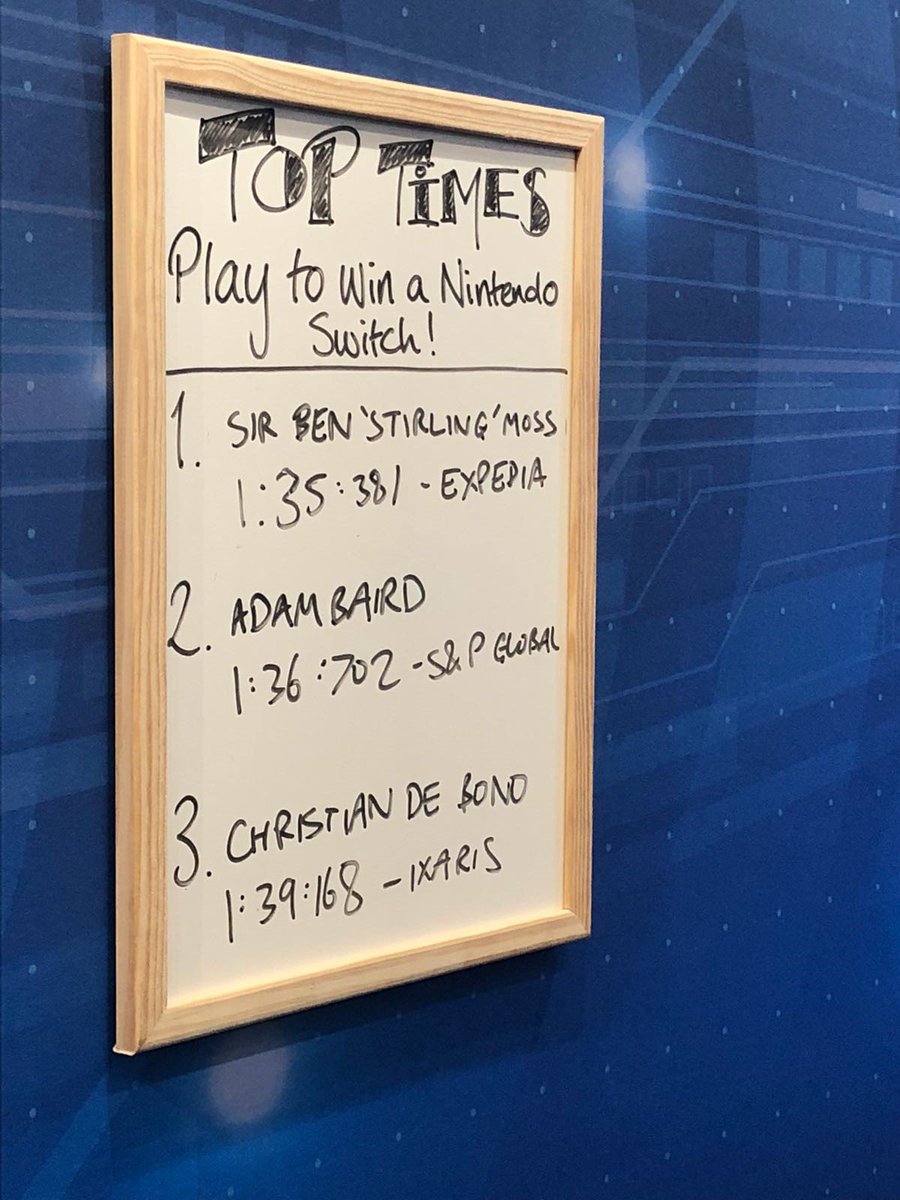 TOP TiMES
Play to win a Nintendo
Switch!
1. SIR BEN 'STIRLING' MOSS
1:35:381 - EXPEDIA
2. ADAM BAIRD
1:36:702 - S&P GLOBAL
3. CHRISTIAN DE BONO
1:39:168 - IXARIS